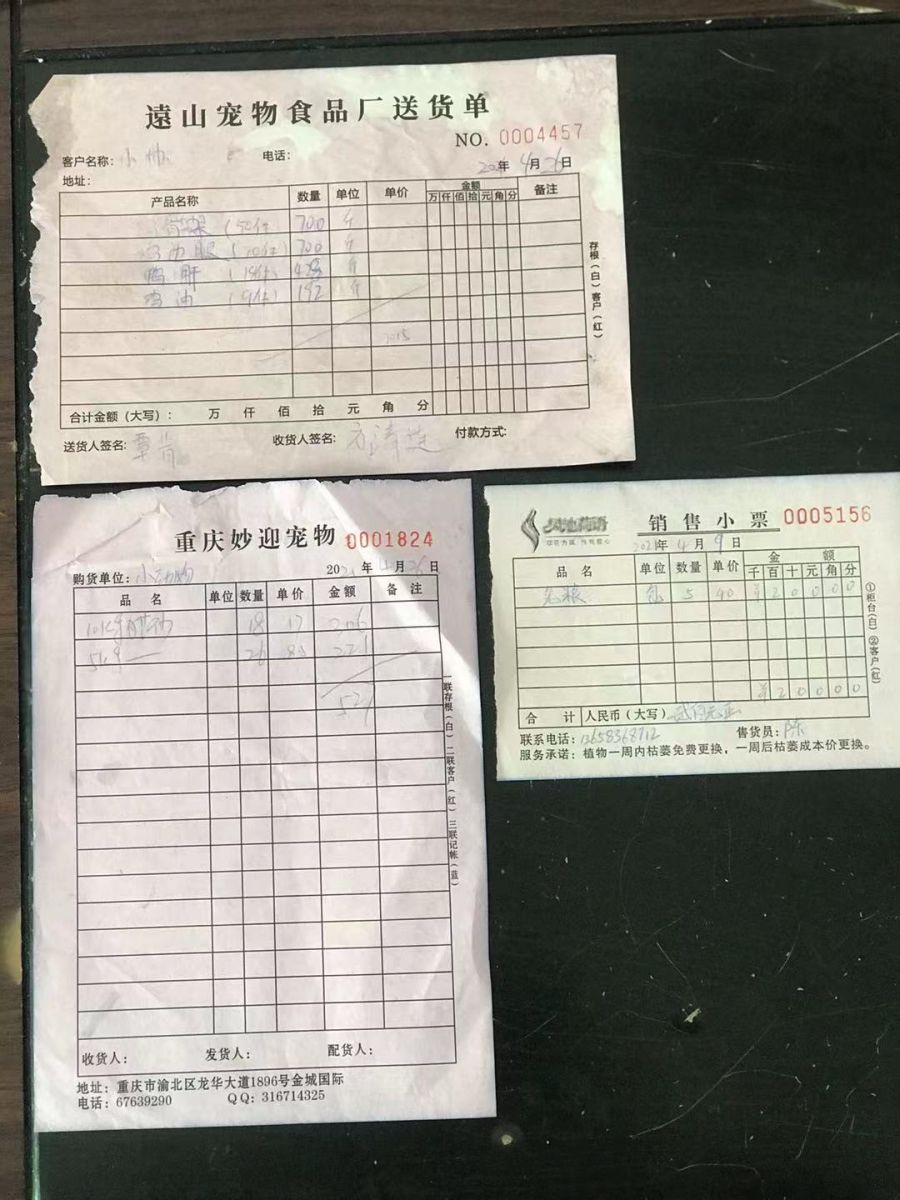 遠山宠物食品厂送货单
NO. 0004457
客户名称: 电话:
年 4月26日
地址:
产品名称 数量 单位 单价 金额 备注
万 仟 佰 拾 元 角 分
700 斤
700 斤
鸭肝 斤
鸡油 192 斤
存根(白)客户(红)
合计金额(大写): 万 仟 佰 拾 元 角 分
送货人签名: 收货人签名: 付款方式:
重庆妙迎宠物 0001824
购货单位: 小动物
年 4月26日
品名 单位 数量 单价 金额 备注
18 17 306
26 221
527
一联存根(白) 二联客户(红) 三联记帐(蓝)
收货人: 发货人: 配货人:
地址: 重庆市渝北区龙华大道1896号金城国际
电话: 67639290 QQ: 316714325
销售小票 0005156
2021年4月9日
品名 单位 数量 单价 金额
千 百 十 元 角 分
包 5 40 ¥20000
¥20000
①柜台(白) ②客户(红)
合计 人民币(大写) 贰佰元正
联系电话: 13658368712 售货员: 陈
服务承诺: 植物一周内枯萎免费更换,一周后枯萎成本价更换。